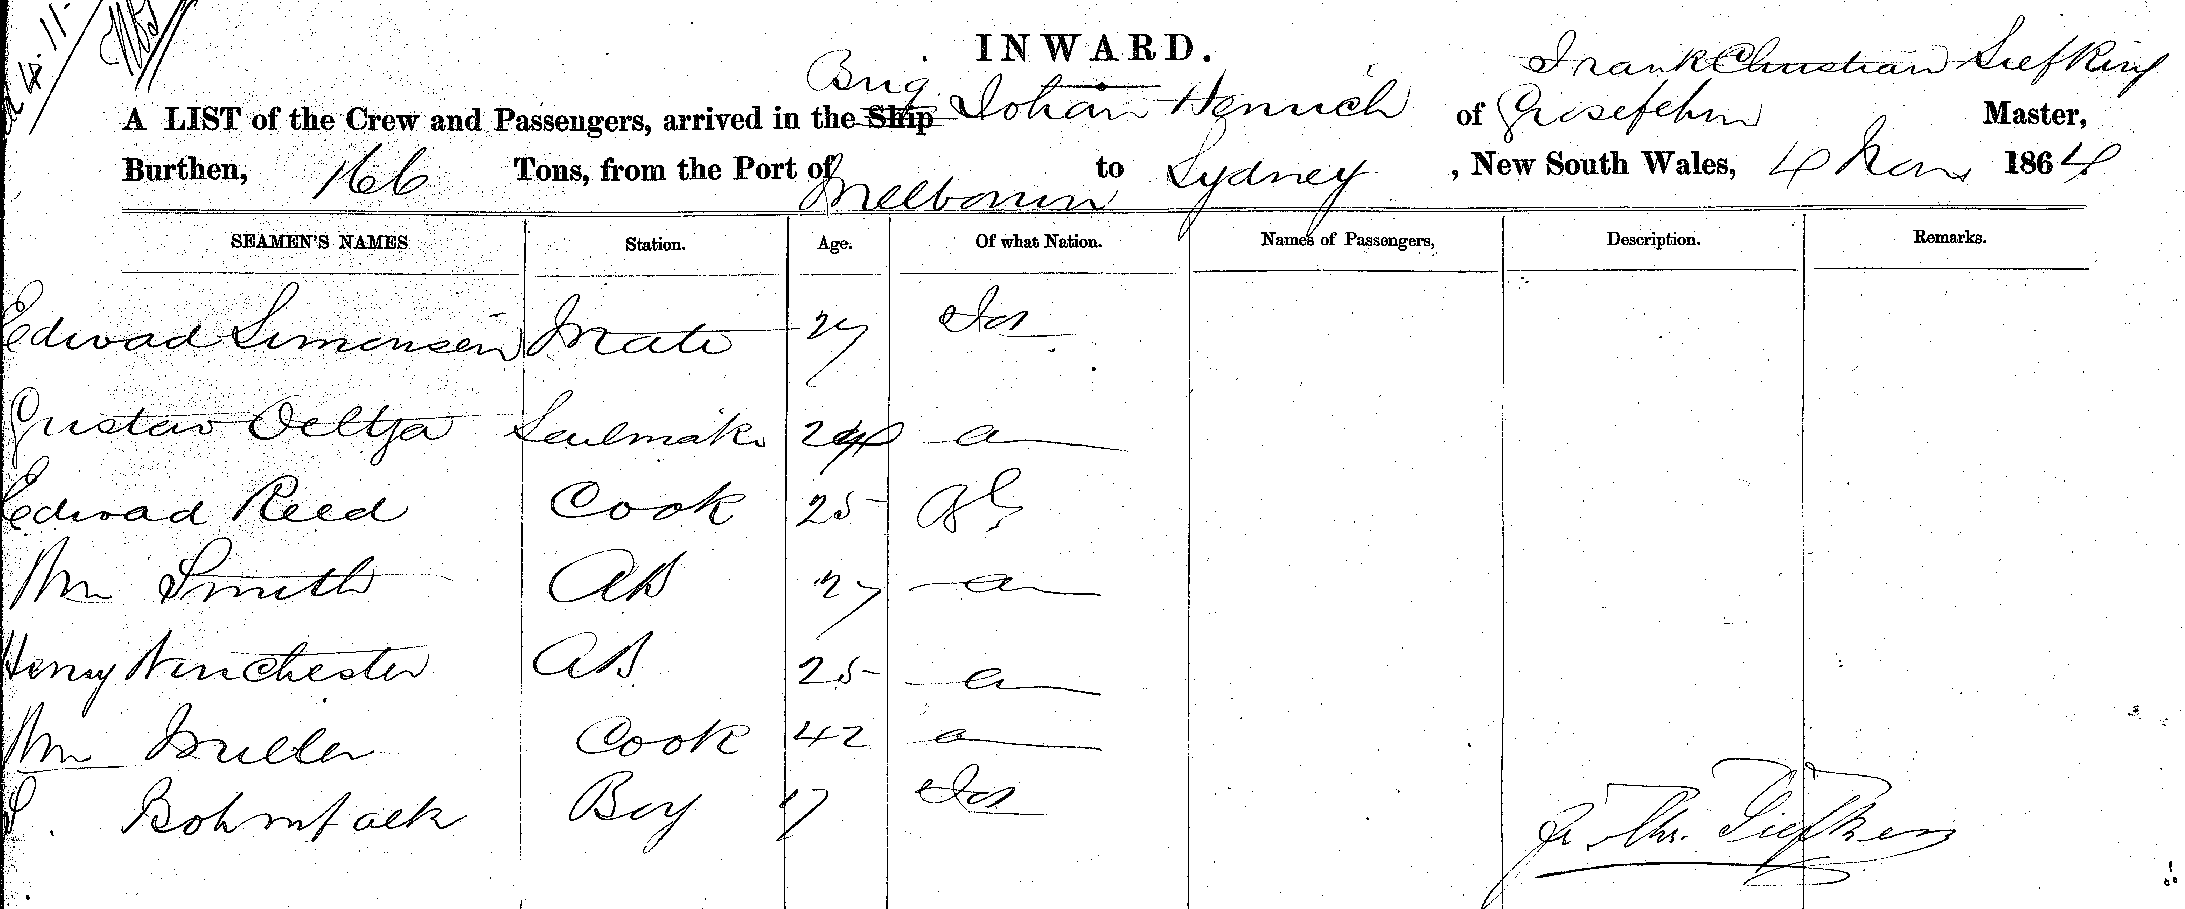 INWARD.
Brig Frank Christian Siefking
A LIST of the Crew and Passengers, arrived in the Ship Johan Henrich of Grosefehn Master,
Burthen, 166 Tons, from the Port of Melbourn to Sydney, New South Wales, 4 1864
SEAMEN'S NAMES Station. Age. Of what Nation. Names of Passengers, Description. Remarks.
Edwad Simonsen Mate 27
Gustav Oeltja 24 a
Edwad Reed Cook 25
Wm Smith AB 27 a
Henry Winchester AB 25 a
Wm Muller Cook 42 a
Boy 17